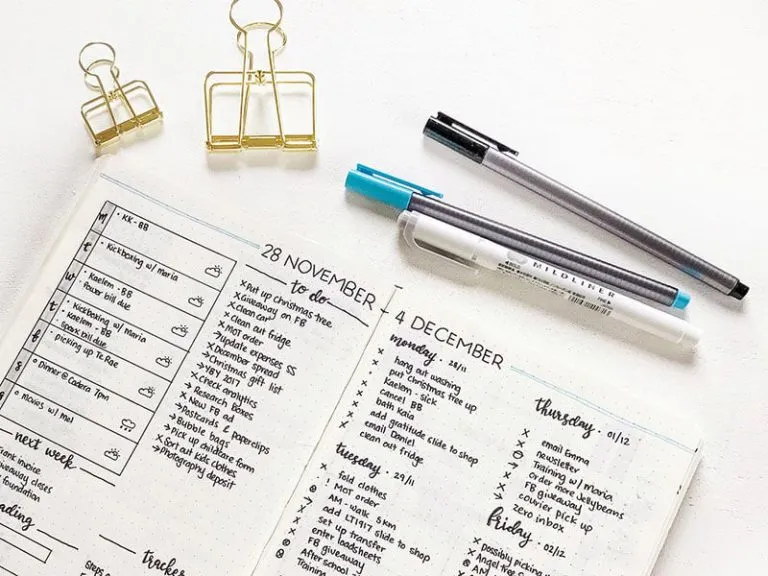 28 NOVEMBER
m
• KK - BB
t
• Kickboxing w/ Maria
w
• Kaelem - BB
• Power bill due
t
• Kickboxing w/ Maria
• Kaelem - BB
Spark bill due
f
picking up Te Rae
s
• Dinner @ Cadera 7pm
s
• Movies w/ Mel
next week
invoice
closes
foundation
to do
x Put up christmas tree
x Giveaway on FB
x Clean car
x Clean out fridge
x MOT order
→ update expenses SS
x December spread
→ Christmas gift list
→ YBY 2017
x Check analytics
→ Research boxes
x New FB ad
→ Postcards & paperclips
→ Bubble bags
x Pick up childcare form
x Sort out kids clothes
→ Photography deposit
tracker
4 DECEMBER
monday • 28/11
x hang out washing
x put christmas tree up
• Kaelem - sick
x cancel BB
x bath Kaia
x add gratitude slide to shop
x email Daniel
x clean out fridge
tuesday • 29/11
x fold clothes
! MOT order
AM - walk 5km
x add LT1917 slide to shop
x set up transfer
x enter loadsheets
FB giveaway
After school
Training
thursday • 01/12
x email Emma
newsletter
Training w/ Maria
→ Order more Jellybeans
x FB giveaway
x courier pick up
x zero inbox
friday • 02/12
x possibly picking
x Angel tree
AM
MILDLINER